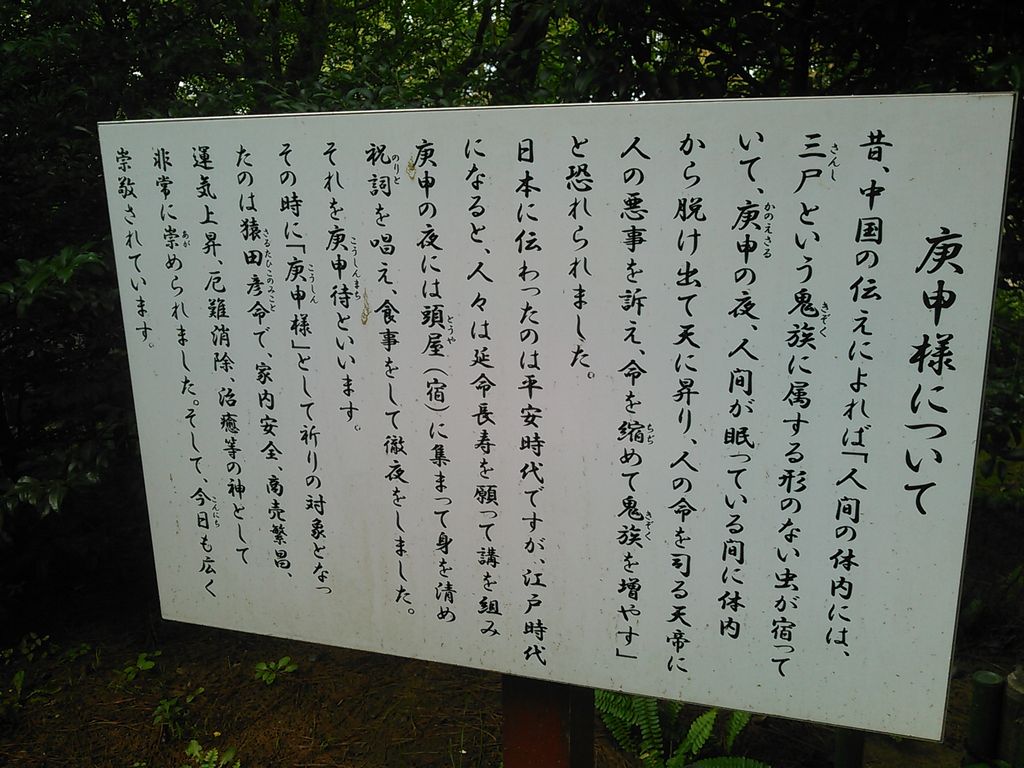 庚申様について
昔、中国の伝えによれば「人間の体内には、
三戸という鬼族に属する形のない虫が宿って
いて、庚申の夜、人間が眠っている間に体内
から脱け出て天に昇り、人の命を司る天帝に
人の悪事を訴え、命を縮めて鬼族を増やす」
と恐れられました。
日本に伝わったのは平安時代ですが、江戸時代
になると、人々は延命長寿を願って講を組み
庚申の夜には頭屋(宿)に集まって身を清め
祝詞を唱え、食事をして徹夜をしました。
それを庚申待といいます。
その時に「庚申様」として祈りの対象となっ
たのは猿田彦命で、家内安全、商売繁昌、
運気上昇、厄難消除、治癒等の神として
非常に崇められました。そして、今日も広く
崇敬されています。